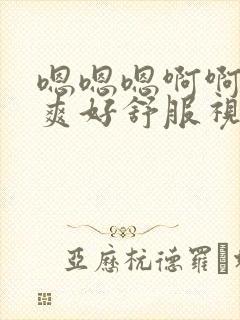 嗯嗯嗯啊啊
爽好舒服視
亞歷杭德羅